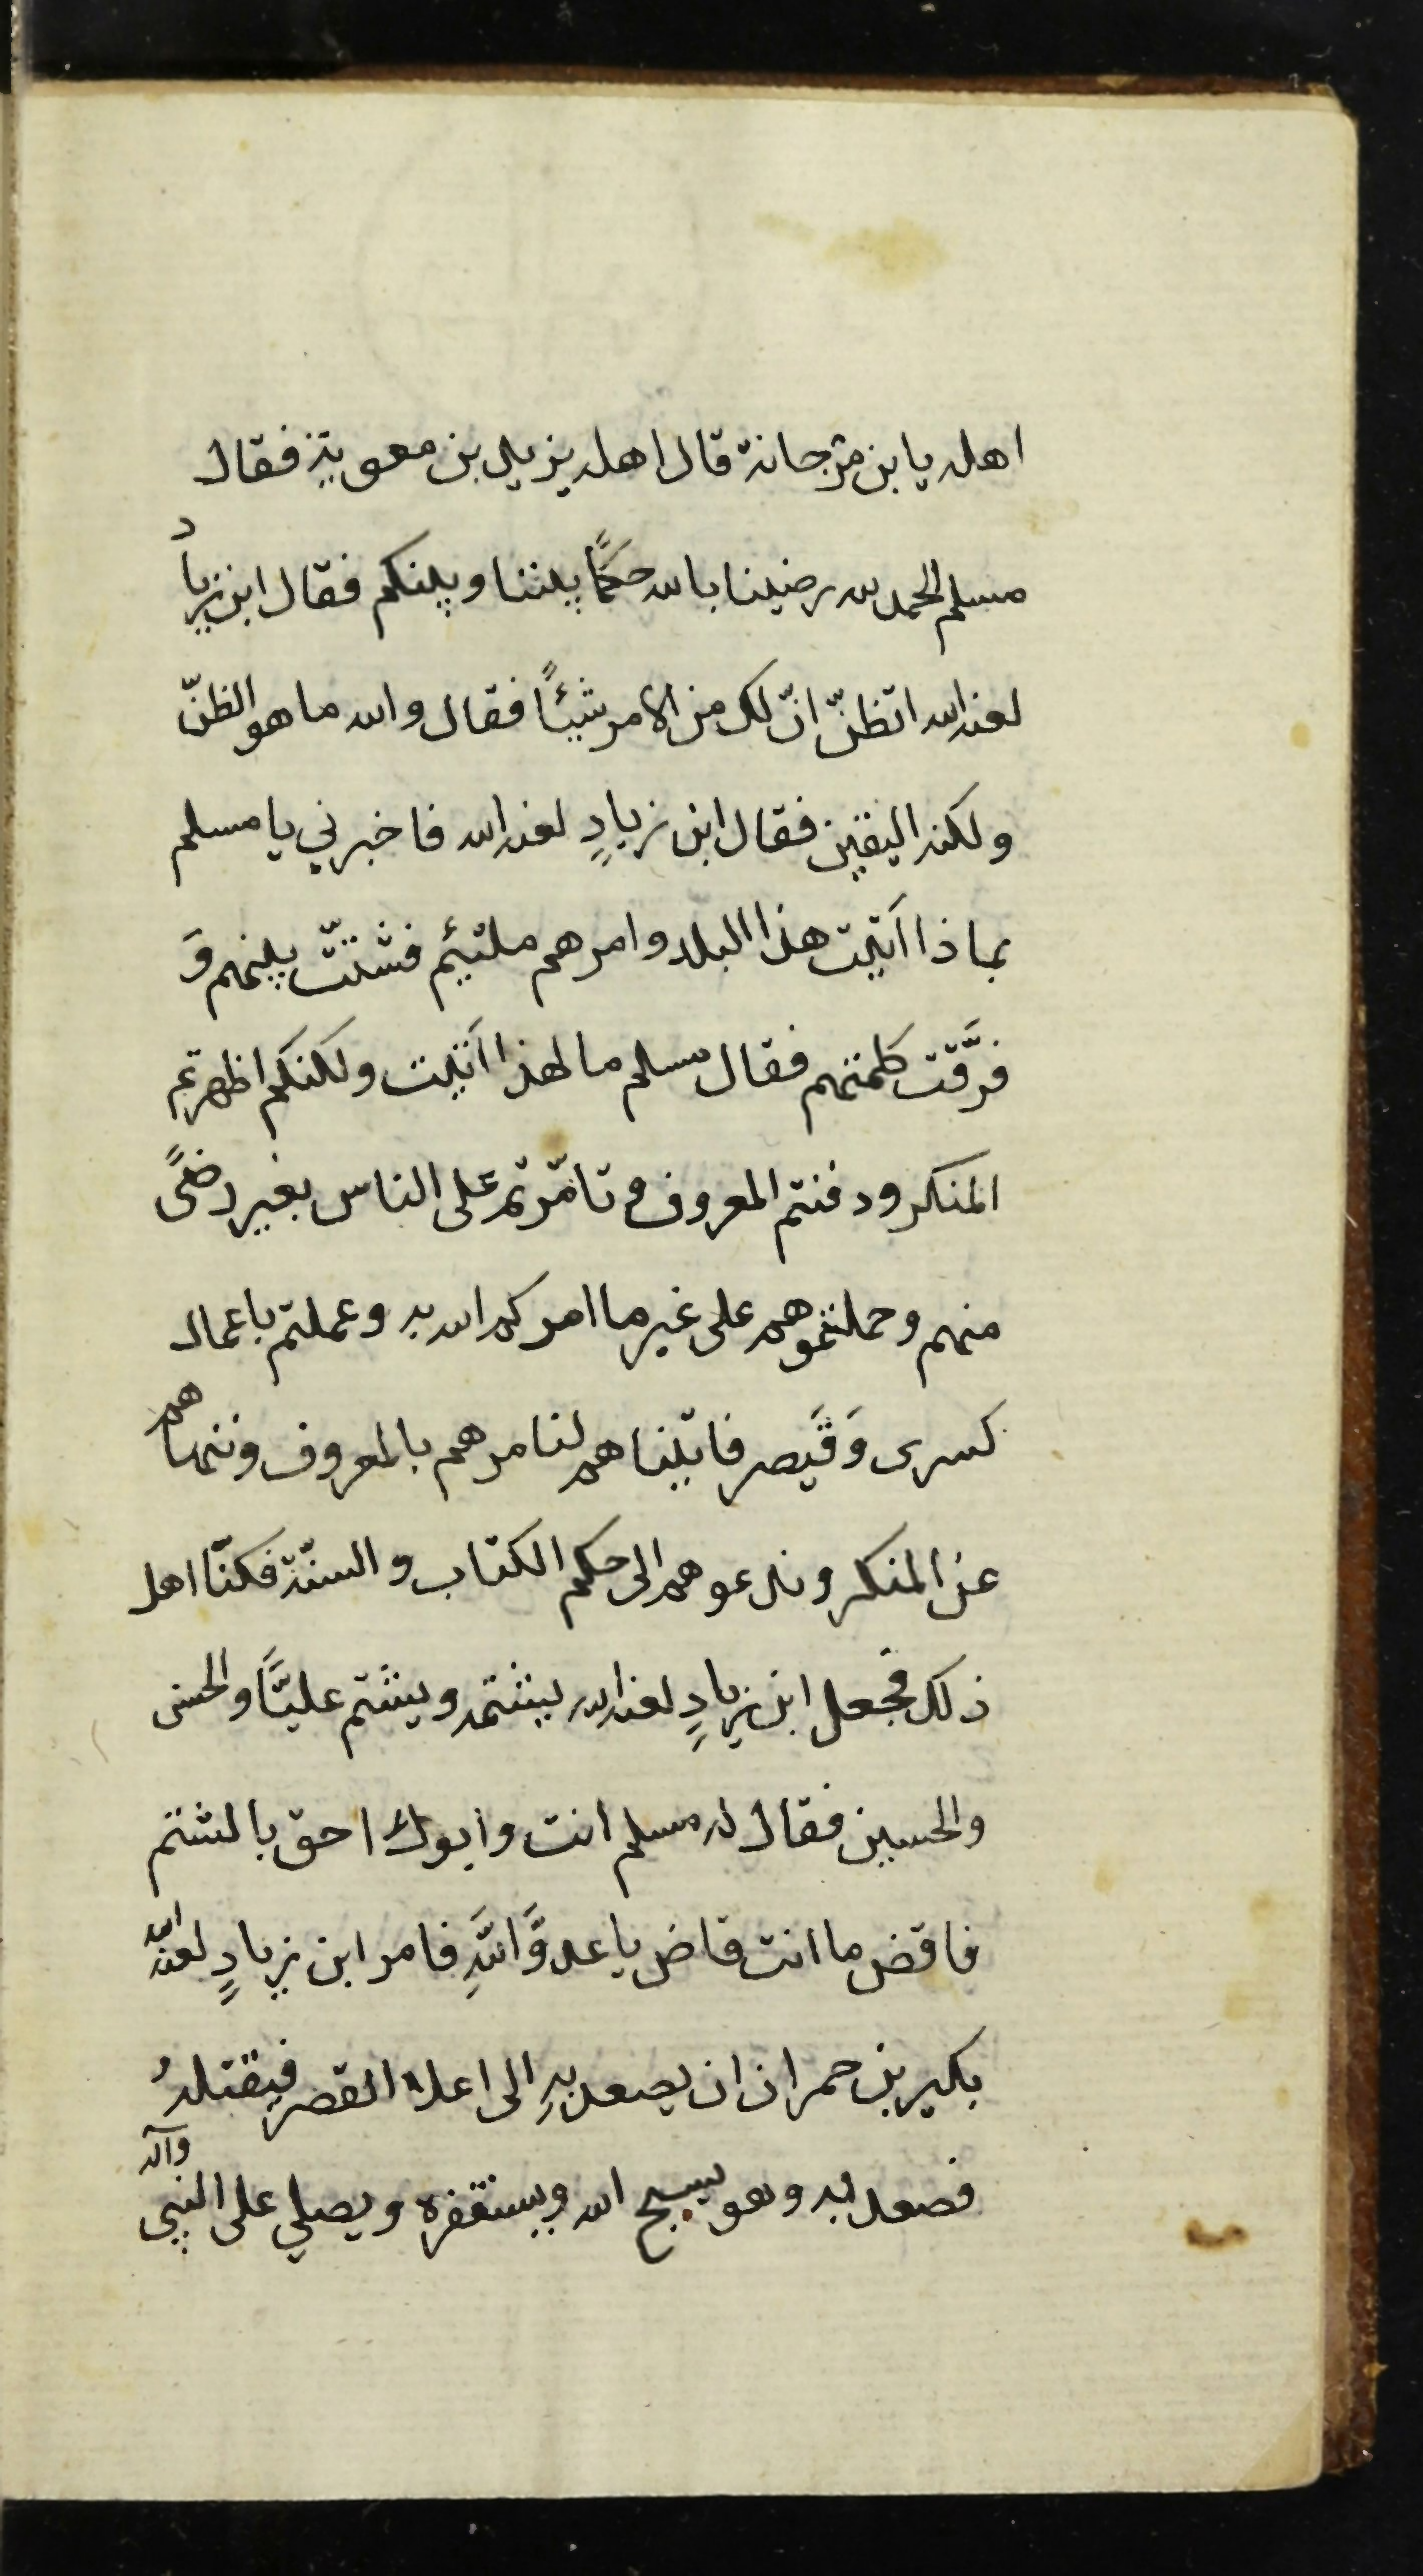 اهله يابن مرجانة قال اهله يزيد بن معوية فقال
مسلم الحمد لله رضينا بالله حكمًا بيننا وبينكم فقال ابن زياد
لعنه الله اتظنّ انّ لك من الامر شيئًا فقال والله ما هو الظنّ
ولكنه اليقين فقال ابن زيادٍ لعنه الله فاخبرني يا مسلم
بماذا اَتيت هذا البلد وامرهم ملتئم فشتتّ بينهم وَ
فرَّقت كلمتهم فقال مسلم ما لهذا اَتيت ولكنكم اظهرتم
المنكر ودفنتم المعروف وتامّرتم على الناس بغير رضًى
منهم وحملتموهم على غير ما امركم الله به وعملتم باعمال
كسرى وَقَيصر فاتيناهم لنامرهم بالمعروف وننهاهم
عن المنكر وندعوهم الى حكم الكتاب والسنّة فكنّا اهل
ذلك فجعل ابن زيادٍ لعنه الله يشتمه ويشتم عليًّا والحسن
والحسين فقال له مسلم انت وابوك احق بالشتم
فاقض ما انت قاض يا عدوَّ اللَّهِ فامر ابن زيادٍ لعنه الله
بكير بن حمران ان يصعد بهِ الى اعلا القصر فيقتلهُ
فصعد به وهو يسبح الله ويستغفره ويصلي على النبي وآله